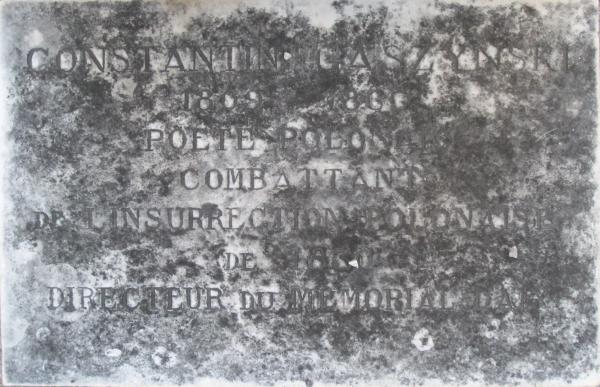 CONSTANTIN GASZYNSKI
1809 1866
POETE POLONAIS
COMBATTANT
DE L'INSURRECTION POLONAISE
DE
DIRECTEUR DU MEMORIAL D'AIX